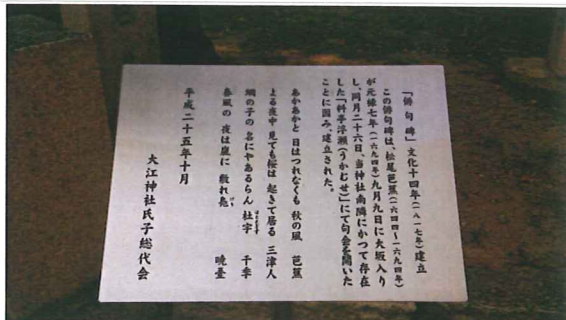 「俳句碑」文化十四年(一八一七年)建立
この俳句碑は、松尾芭蕉(一六四四~一六九四年)
が元禄七年(一六九四年)九月九日に大坂入り
し、同月二十六日、当神社南隣にかつて存在
した「料亭浮瀬(うかむせ)」にて句会を開いた
ことに因み、建立された。
あかあかと 日はつれなくも 秋の風 芭蕉
よる夜中 見ても桜は 起きて居る 三津人
網の子の 名にやあるらん 杜宇 千季
ほととぎす
春風の 夜は嵐に 敷れ 暁臺
平成二十五年十月
大江神社氏子総代会